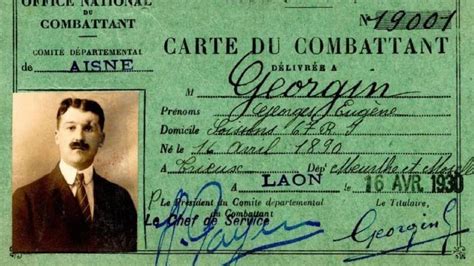 OFFICE NATIONAL
DU
COMBATTANT
COMITÉ DÉPARTEMENTAL
d AISNE
N° 19001
CARTE DU COMBATTANT
DÉLIVRÉE A
M Georgin
Prénoms Georges Eugène
Domicile Soissons
Né le 16 avril 1890
à Dépt Meurthe et Mos
A LAON, le 16 AVR. 1930
Le Président du Comité Départemental
du Combattant
Le Titulaire,
Le Chef de Service
Georgin